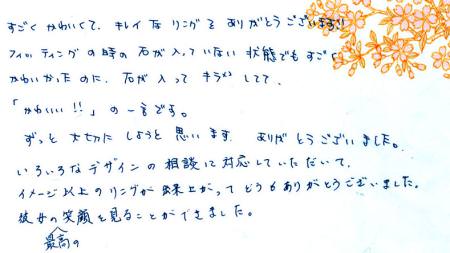 すごくかわいくて、キレイなリングをありがとうございます!!
フィッティングの時の石が入っていない状態でもすごく
かわいかったのに、石が入ってキラキラしてて
「かわいい!!」の一言です。
ずっと大切にしようと思います。ありがとうございました。
いろいろなデザインの相談に対応していただいて、
イメージ以上のリングが出来上がってどうもありがとうございました。
彼女の笑顔を見ることができました。
最高の